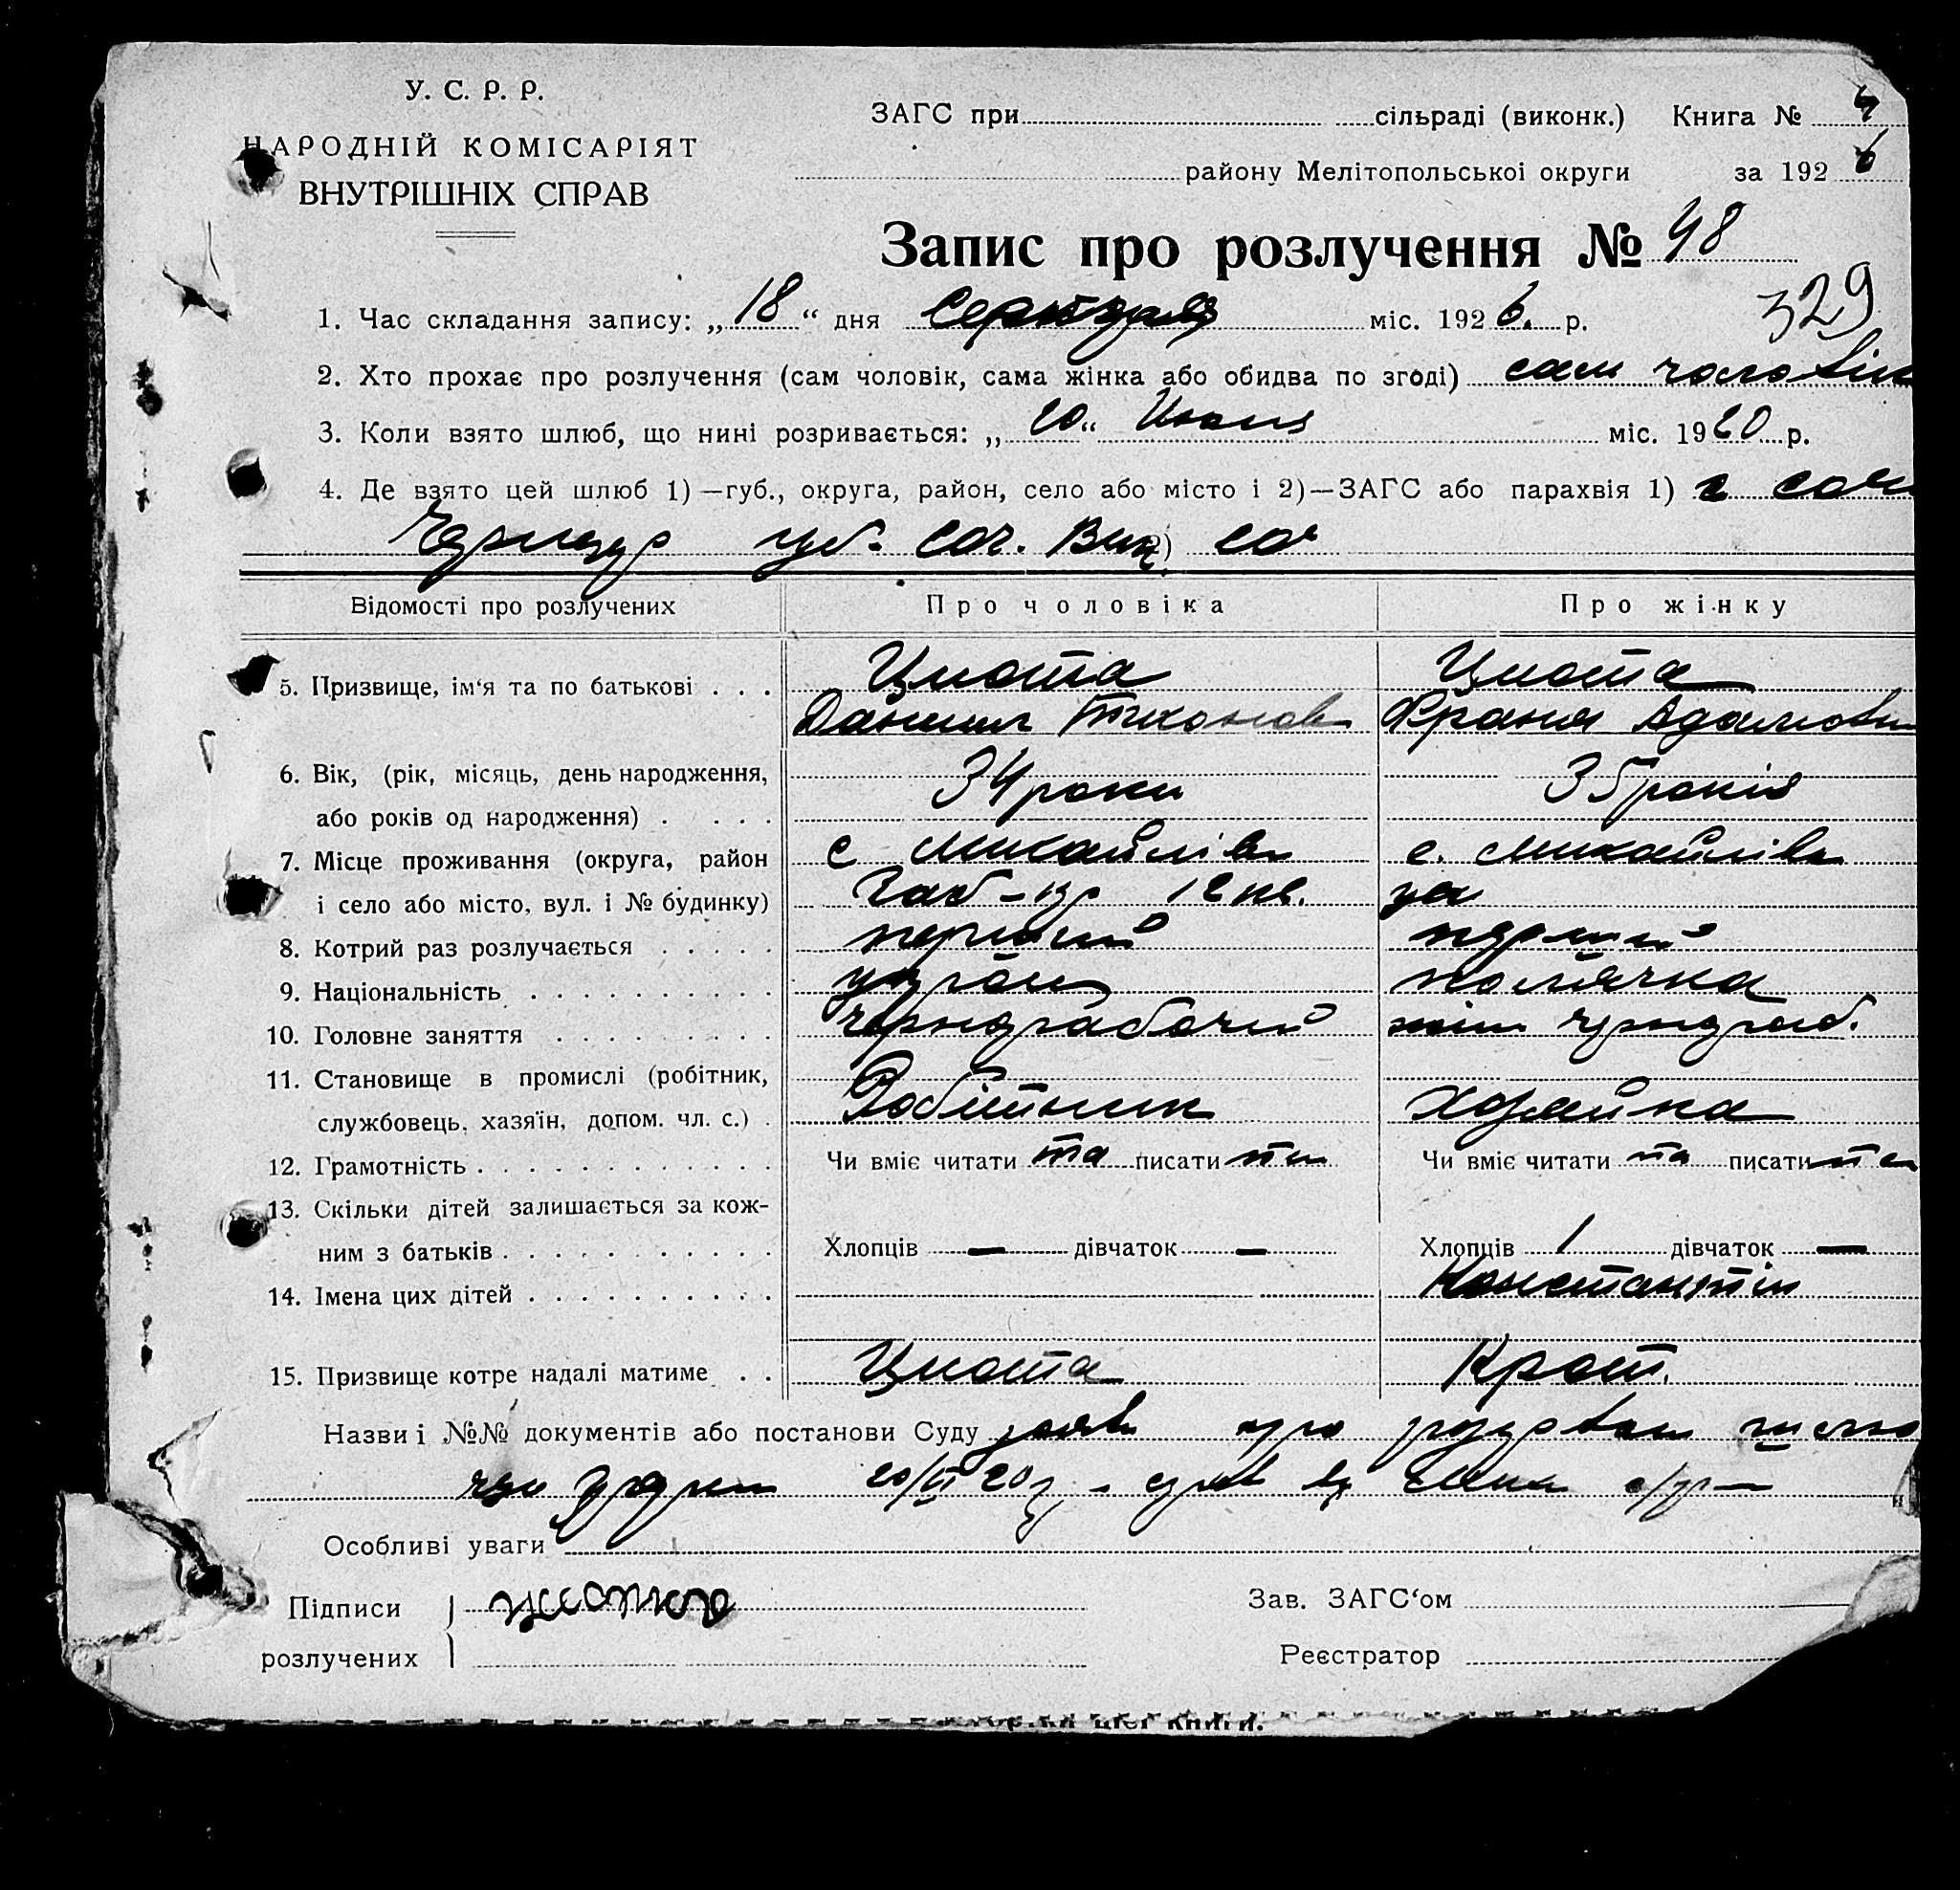 У. С. Р. Р.
НАРОДНІЙ КОМІСАРІЯТ
ВНУТРІШНІХ СПРАВ
ЗАГС при сільраді (виконк.) Книга № 4
району Мелітопольської округи за 1926
Запис про розлучення № 48
329
1. Час складання запису: „18“ дня Серпня міс. 1926. р.
2. Хто прохає про розлучення (сам чоловік, сама жінка або обидва по згоді) сам чоловік
3. Коли взято шлюб, що нині розривається: „20“ Июня міс. 1920 р.
4. Де взято цей шлюб 1)—губ., округа, район, село або місто і 2)—ЗАГС або парахвія 1) г Сочи
губ. Соч. 2)
Відомості про розлучених Про чоловіка Про жінку
5. Призвище, ім‘я та по батькові . . . Цюта Цюта
Данил Тихонов Франя Адамовн
6. Вік, (рік, місяць, день народження,
або років од народження) . . . . 34 роки 35 років
7. Місце проживання (округа, район с Михайлівк с. Михайлівк
і село або місто, вул. і № будинку) 12 кв.
8. Котрий раз розлучається . . . . . перший перший
9. Національність . . . . . . . . . . україн полячка
10. Головне заняття . . . . . . . . . чорнорабочий чорнораб.
11. Становище в промислі (робітник,
службовець, хазяїн, допом. чл. с.) . Робітник Хозяйка
12. Грамотність . . . . . . . . . . . . Чи вміє читати та писати Чи вміє читати та писати
13. Скільки дітей залишається за кож-
ним з батьків . . . . . . . . . . . Хлопців — дівчаток — Хлопців 1 дівчаток —
14. Імена цих дітей . . . . . . . . . . Константін
15. Призвище котре надалі матиме . . Цюта Крот.
Назви і №№ документів або постанови Суду заяв про шлюб
20/VI 20 р.
Особливі уваги
Підписи
розлучених
Зав. ЗАГС‘ом
Реєстратор
цієї книги.